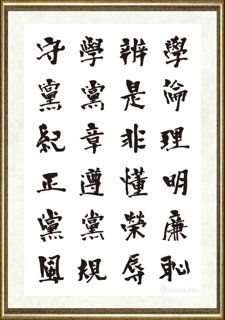 學倫理明廉恥
辨是非懂榮辱
學黨章遵黨規
守黨紀正黨風